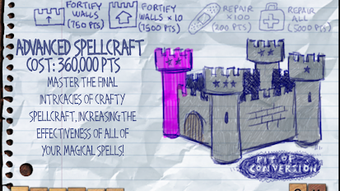 FORTIFY
WALLS
(750 PTS)
FORTIFY
WALLS X 10
(7500 PTS)
REPAIR
X100
(200 PTS)
REPAIR
ALL
(5000 PTS)
ADVANCED SPELLCRAFT
COST: 360,000 PTS
MASTER THE FINAL
INTRICACIES OF CRAFTY
SPELLCRAFT, INCREASING THE
EFFECTIVENESS OF ALL OF
YOUR MAGICAL SPELLS!
PIT OF
CONVERSION